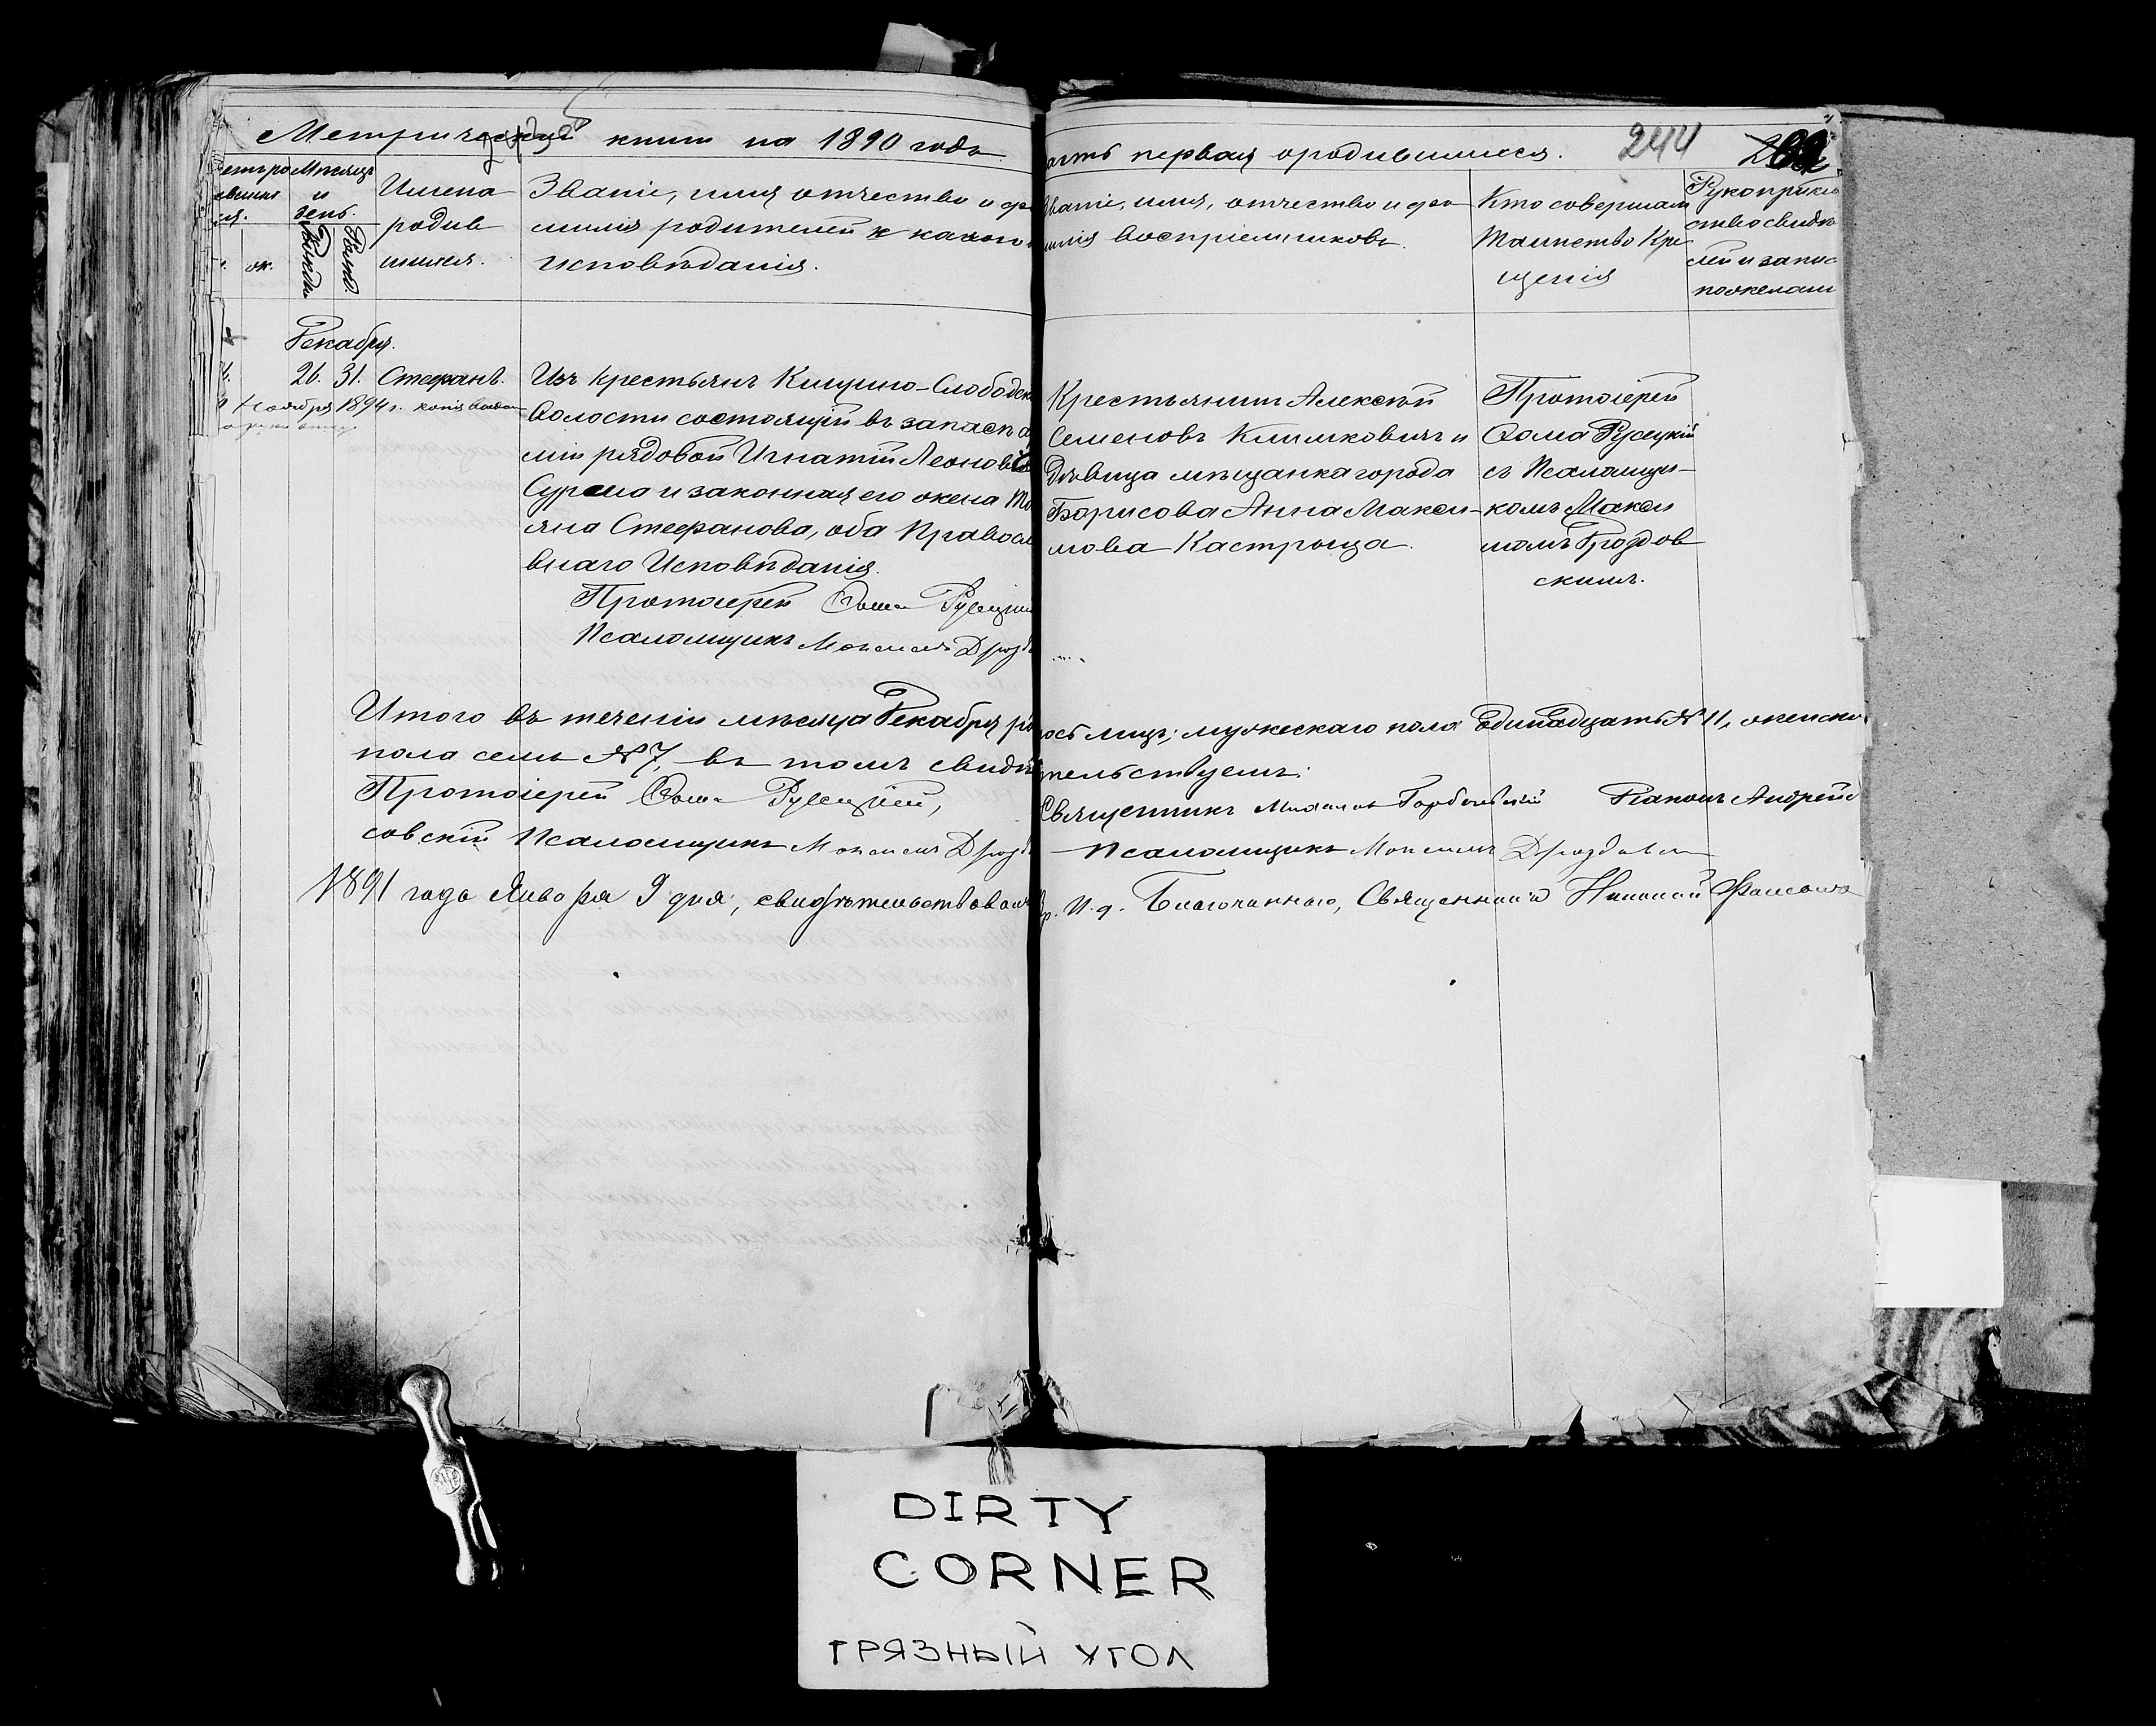 Метрической книги на 1890 годъ
асть первая о родившихся.
244
Счетъ ро
Мѣсяцъ
и
день.
Имена
родив
шихся.
Званіе, имя отчество и фа
милія родителей и какого
исповѣданія.
Званіе, имя, отчество и фа
милія воспріемниковъ.
Кто совершалъ
Таинство Кре
щенія
Рукоприклад
ство свидѣ
лей и запис
по желані
ж.
Рожден
Крещ
Декабря.
26. 31. Стефанъ.
Ноября 1894 г. копія выдан
Изъ крестьянъ Кищино-Слободск
Волости состоящій въ запасѣ а
міи рядовой Игнатій Леоновъ
Сурма и законная его жена
яна Стефанова, оба Правосл
внаго Исповѣданія.
Протоіерей Ѳома Русецкій
Псаломщикъ Максимъ Дрозд
Крестьянинъ Алексѣй
Семеновъ Климковичъ и
Дѣвица мѣщанка города
Борисова Анна Макси-
мова Кастрюца.
Протоіерей
Ѳома Русецкій
съ Псаломщи-
комъ Макси
момъ Дроздов
скимъ.
Итого въ теченіи мѣсяца Декабря ро
ось лицъ; мужескаго пола Единадцать № 11, женска
пола семь № 7, въ томъ свидѣ
тельствуемъ:
Протоіерей Ѳома Русецкій,
Священникъ Михаилъ Діаконъ Андрей
совскій Псаломщикъ Максимъ Дрозд
Псаломщикъ Максимъ
1891 года Января 9 дня, свидѣтельствовалъ
И. д. Благочиннаго, Священникъ Николай
DIRTY
CORNER
ГРЯЗНЫЙ УГОЛ